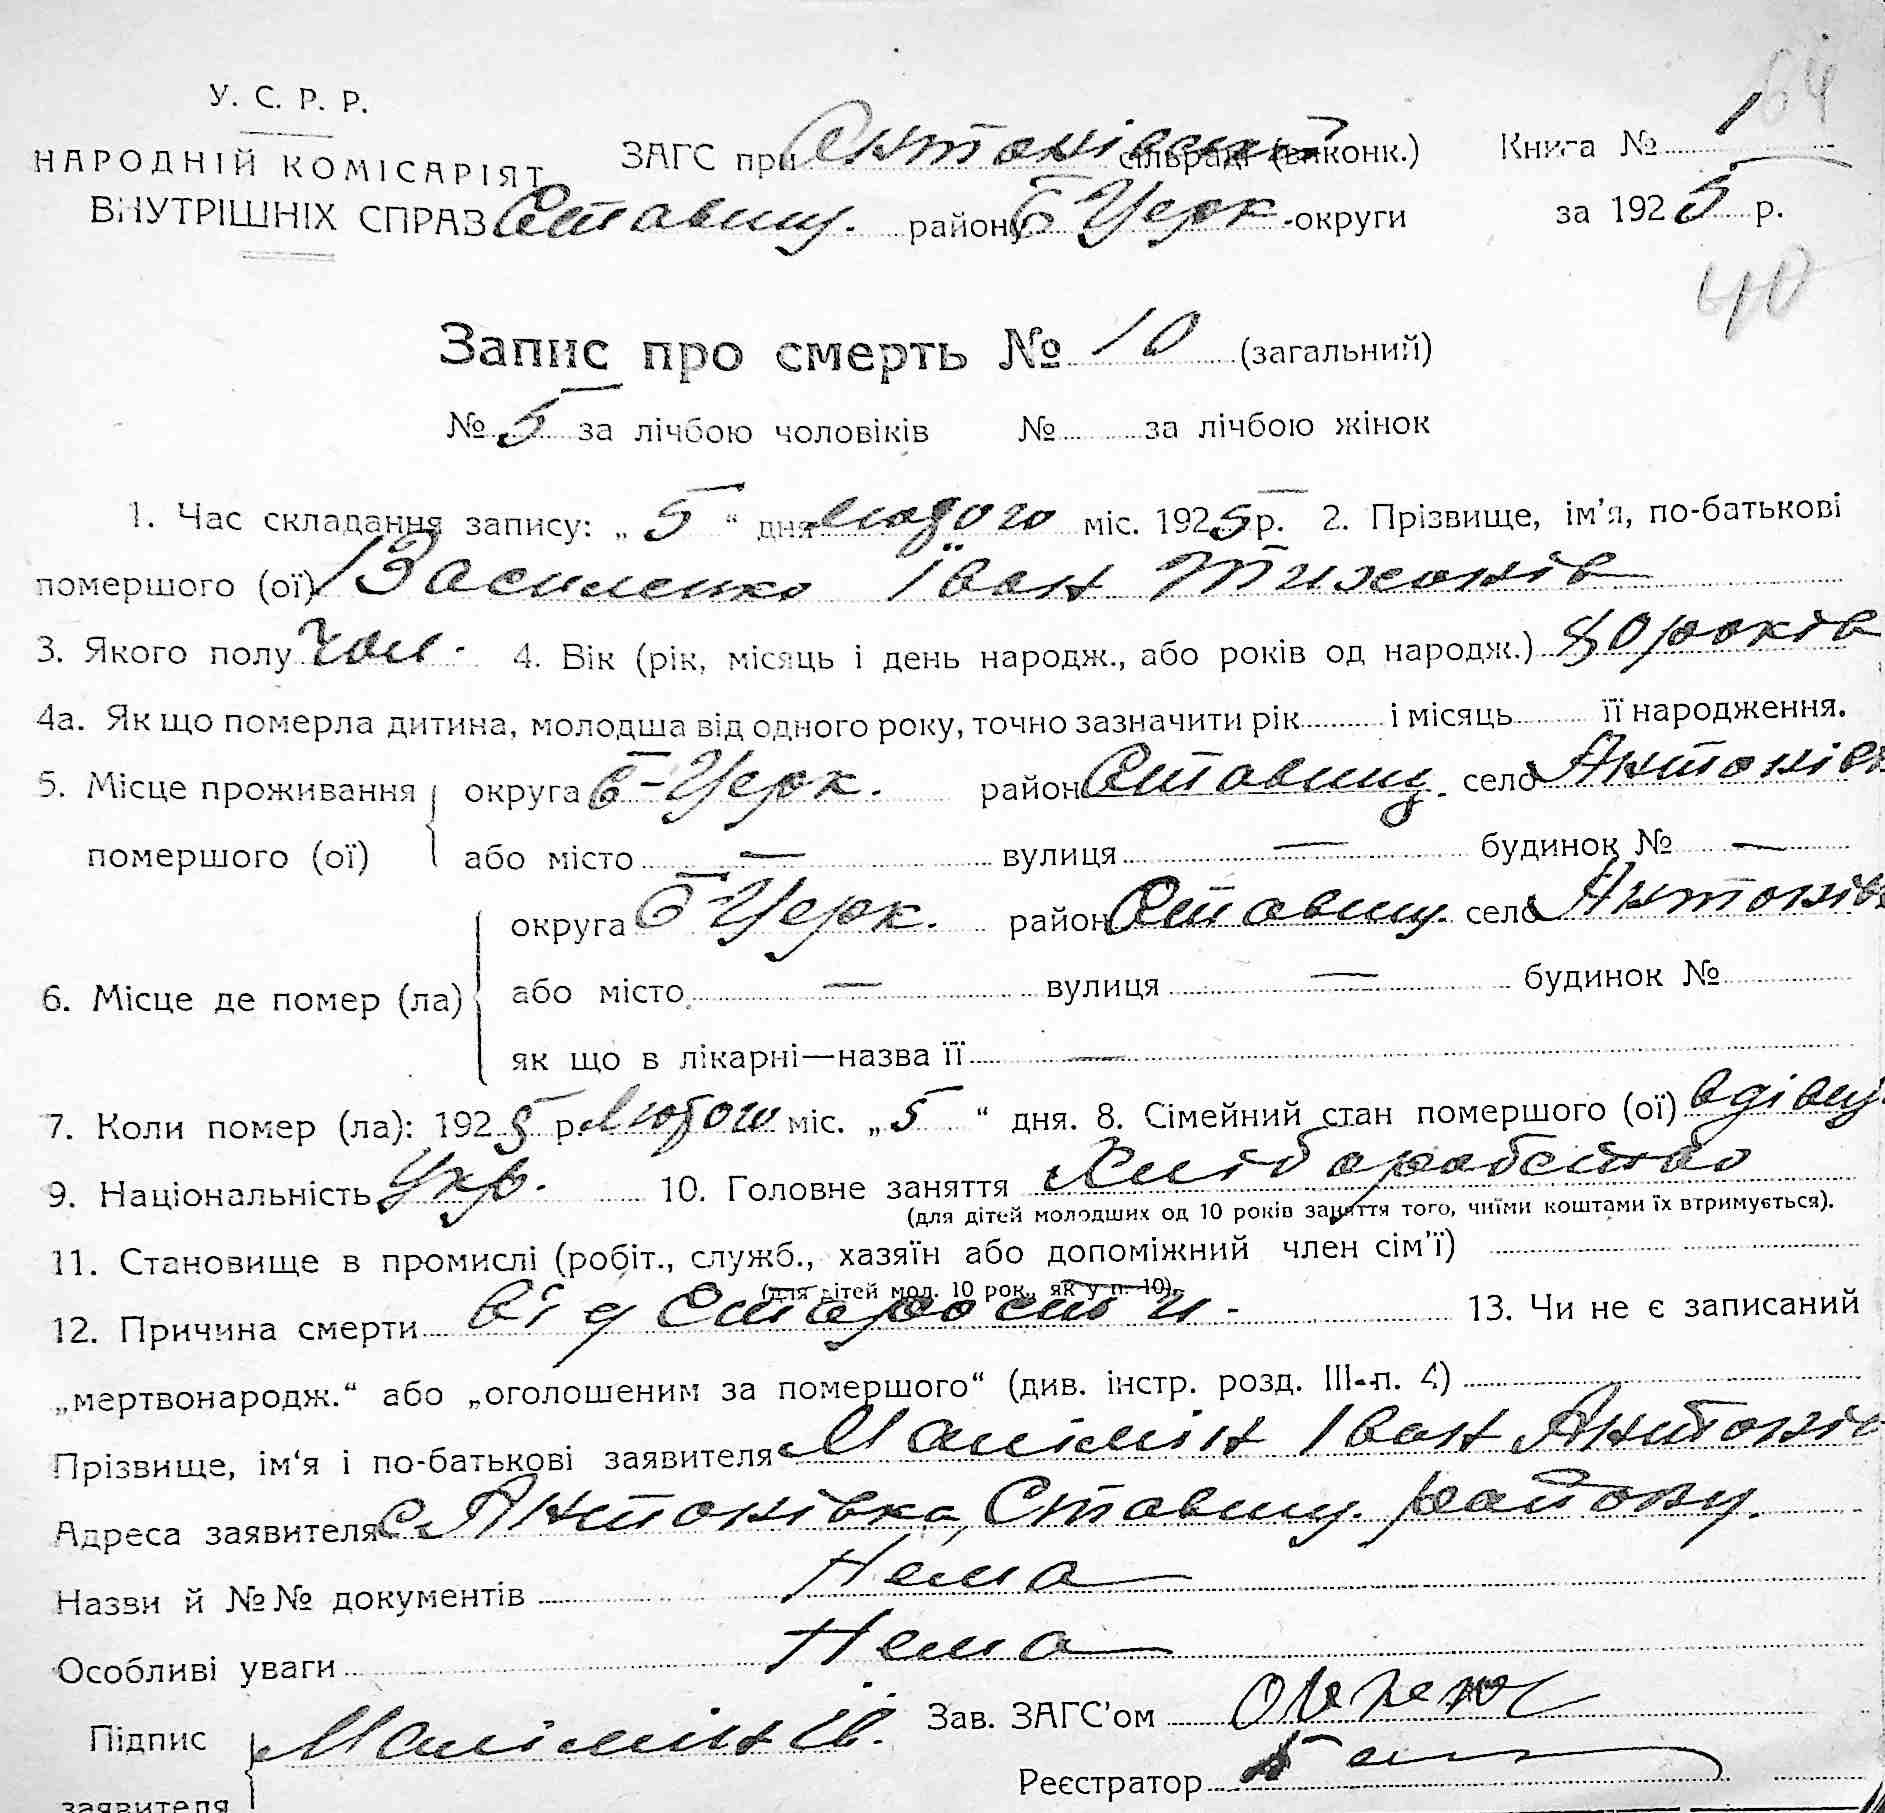 64
У. С. Р. Р.
НАРОДНІЙ КОМІСАРІЯТ
ВНУТРІШНІХ СПРАВ
ЗАГС при Антонівській сільраді (виконк.) Книга № 1
Ставищ. району Б Церк. округи за 1925 р.
40
Запис про смерть № 10 (загальний)
№ 5 за лічбою чоловіків № за лічбою жінок
1. Час складання запису: „5“ дня лютого міс. 1925 р. 2. Прізвище, ім'я, по-батькові
помершого (ої) Василенко Іван Тихонів
3. Якого полу Чол. 4. Вік (рік, місяць і день народж., або років од народж.) 80 років
4а. Як що померла дитина, молодша від одного року, точно зазначити рік і місяць її народження.
5. Місце проживання помершого (ої) округа Б-Церк. район Ставищ. село Антонівк
або місто — вулиця — будинок № —
6. Місце де помер (ла) округа Б Церк. район Ставищ. село Антонівк
або місто — вулиця — будинок №
як що в лікарні—назва її —
7. Коли помер (ла): 1925 р. Лютого міс. „5“ дня. 8. Сімейний стан помершого (ої) вдівец
9. Національність Укр. 10. Головне заняття Хліборобство
(для дітей молодших од 10 років заняття того, чиїми коштами їх втримується).
11. Становище в промислі (робіт., служб., хазяїн або допоміжний член сім'ї)
(для дітей мол. 10 рок., як у п. 10)
12. Причина смерти від Старости. 13. Чи не є записаний
„мертвонародж.“ або „оголошеним за помершого“ (див. інстр. розд. III-п. 4)
Прізвище, ім'я і по-батькові заявителя Іван Антонів
Адреса заявителя с. Антонівка, Ставищ. району.
Назви й №№ документів Нема
Особливі уваги Нема
Підпис заявителя
Зав. ЗАГС'ом
Реєстратор